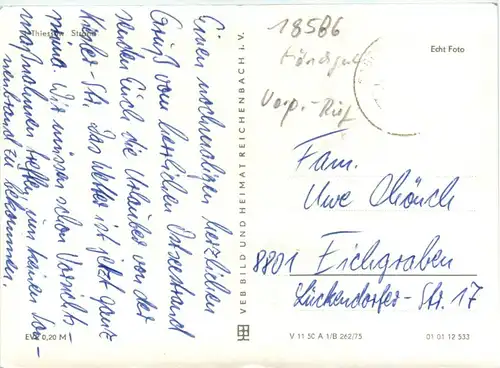 Thiessow Strand
Einen nochmaligen herzlichen
Gruß vom herrlichen Ostseestrand
senden Euch die Urlauber von der
Kepler-Str. Das Wetter ist jetzt ganz
prima. Wir müssen schon Vorsichts-
maßnahmen treffen um keinen Son-
nenbrand zu bekommen.
EVP 0,20 M
VEB BILD UND HEIMAT REICHENBACH I. V.
18586
Vorp.-Rüg
Echt Foto
Fam.
Uwe Mönch
8801 Eichgraben
Lückendorfer-Str. 17
V 11 50 A 1/B 262/75
01 01 12 533